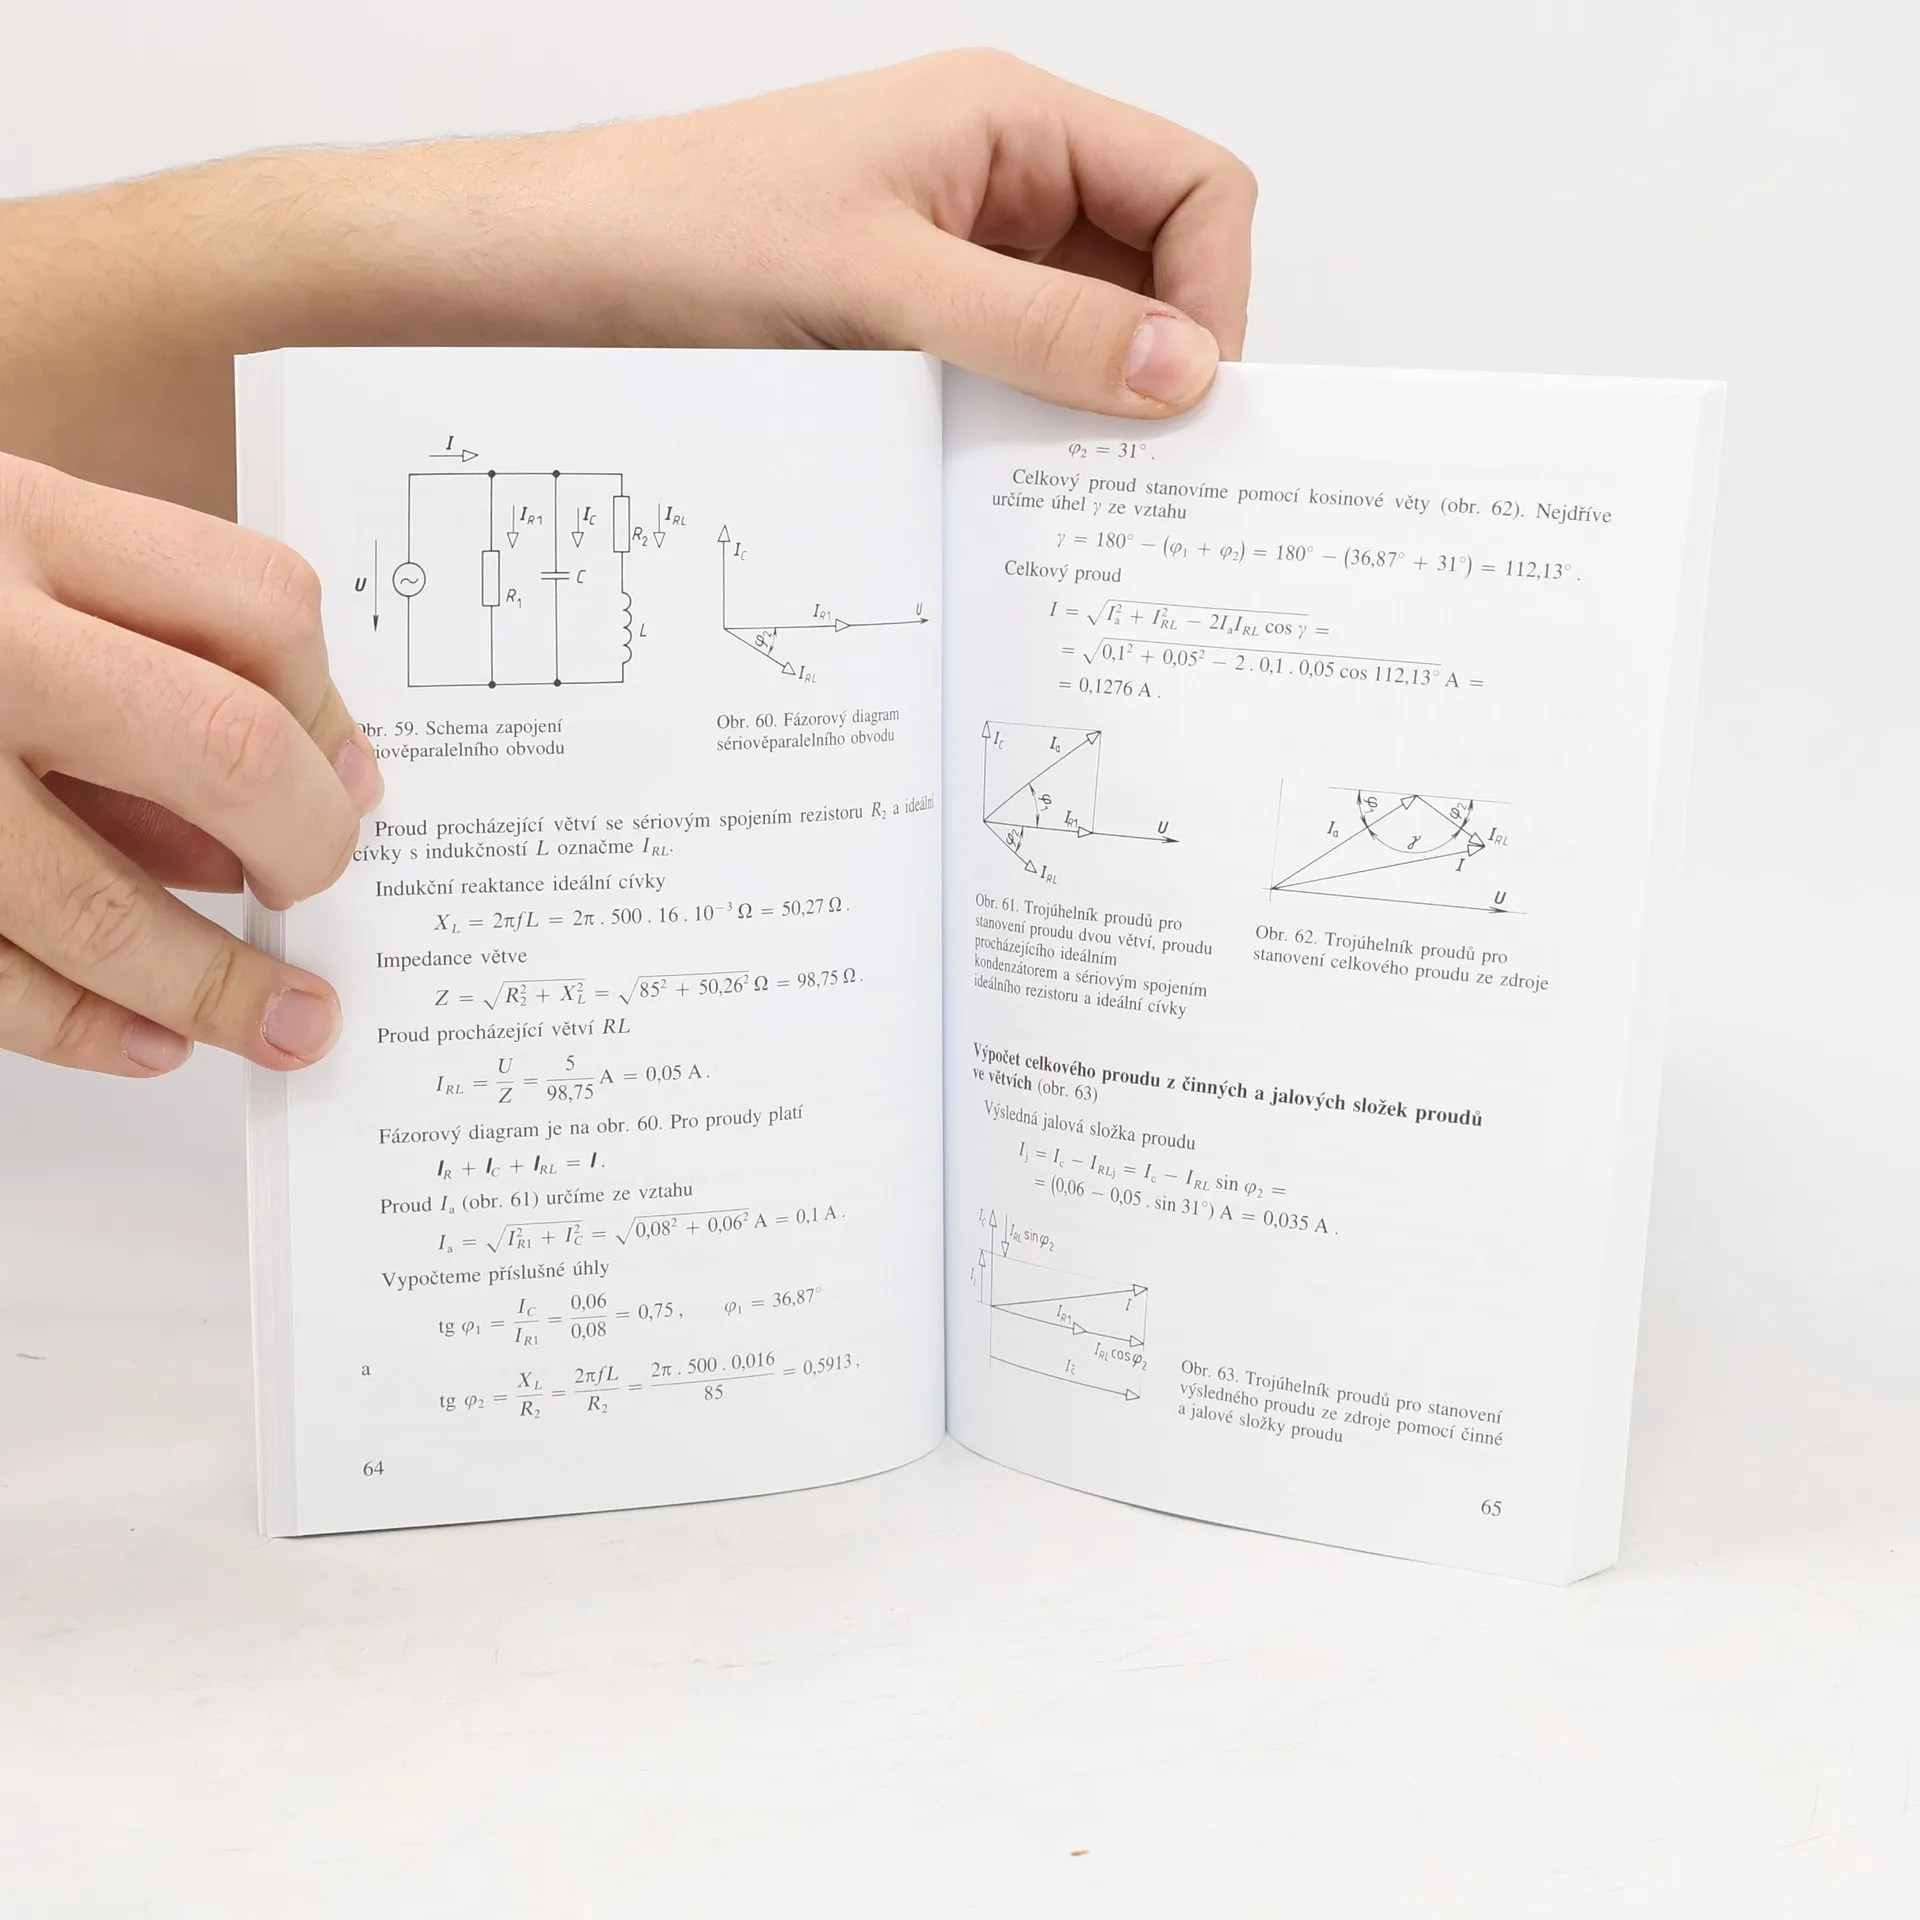 I
I_R1
I_C
R_2
I_RL
U
R_1
C
L
I_C
I_R1
U
φ_2
I_RL
br. 59. Schema zapojení
iověparalelního obvodu
Obr. 60. Fázorový diagram
sériověparalelního obvodu
Proud procházející větví se sériovým spojením rezistoru R_2 a ideální
cívky s indukčností L označme I_RL.
Indukční reaktance ideální cívky
X_L = 2πfL = 2π . 500 . 16 . 10^−3 Ω = 50,27 Ω .
Impedance větve
Z = √(R_2^2 + X_L^2) = √(85^2 + 50,26^2) Ω = 98,75 Ω .
Proud procházející větví RL
I_RL = U/Z = 5/98,75 A = 0,05 A .
Fázorový diagram je na obr. 60. Pro proudy platí
I_R + I_C + I_RL = I .
Proud I_a (obr. 61) určíme ze vztahu
I_a = √(I_R1^2 + I_C^2) = √(0,08^2 + 0,06^2) A = 0,1 A .
Vypočteme příslušné úhly
tg φ_1 = I_C/I_R1 = 0,06/0,08 = 0,75 , φ_1 = 36,87°
a
tg φ_2 = X_L/R_2 = 2πfL/R_2 = 2π . 500 . 0,016/85 = 0,5913 ,
64
φ_2 = 31° .
Celkový proud stanovíme pomocí kosinové věty (obr. 62). Nejdříve
určíme úhel γ ze vztahu
γ = 180° − (φ_1 + φ_2) = 180° − (36,87° + 31°) = 112,13° .
Celkový proud
I = √(I_a^2 + I_RL^2 − 2I_aI_RL cos γ) =
= √(0,1^2 + 0,05^2 − 2 . 0,1 . 0,05 cos 112,13°) A =
= 0,1276 A .
I_C
I_a
φ_1
I_R1
U
φ_2
I_RL
φ_1
φ_2
I_a
γ
I_RL
I
U
Obr. 61. Trojúhelník proudů pro
stanovení proudu dvou větví, proudu
procházejícího ideálním
kondenzátorem a sériovým spojením
ideálního rezistoru a ideální cívky
Obr. 62. Trojúhelník proudů pro
stanovení celkového proudu ze zdroje
Výpočet celkového proudu z činných a jalových složek proudů
ve větvích (obr. 63)
Výsledná jalová složka proudu
I_j = I_c − I_RLj = I_c − I_RL sin φ_2 =
= (0,06 − 0,05 . sin 31°) A = 0,035 A .
I_C
I_RL sinφ_2
I_j
I
I_R1
I_RL cosφ_2
I_č
Obr. 63. Trojúhelník proudů pro stanovení
výsledného proudu ze zdroje pomocí činné
a jalové složky proudu
65